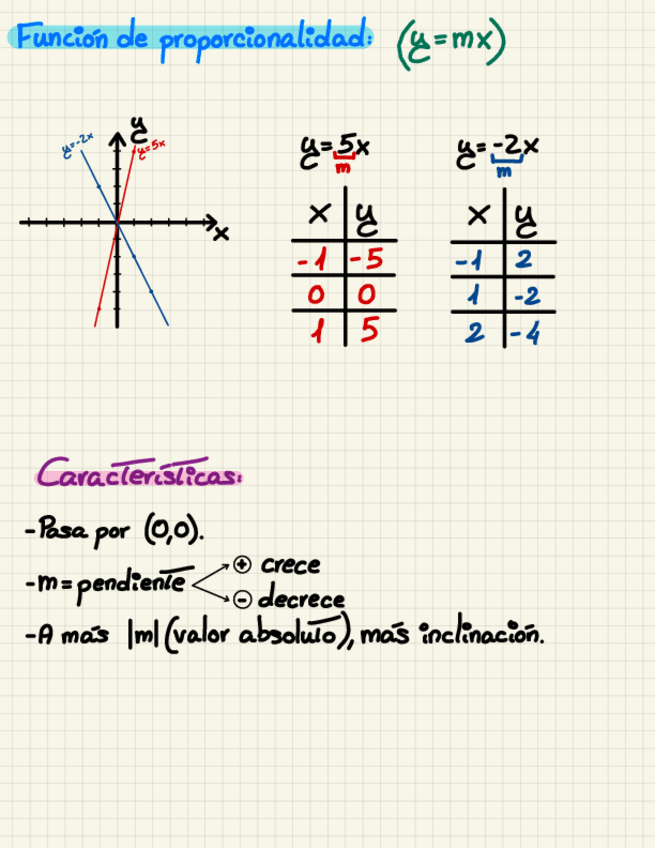 Función de proporcionalidad: (y=mx)
y=-2x
y
y=5x
x
y=5x
m
x y
-1 -5
0 0
1 5
y=-2x
m
x y
-1 2
1 -2
2 -4
Características:
-Pasa por (0,0).
-m=pendiente
+ crece
- decrece
-A más |m| (valor absoluto), más inclinación.